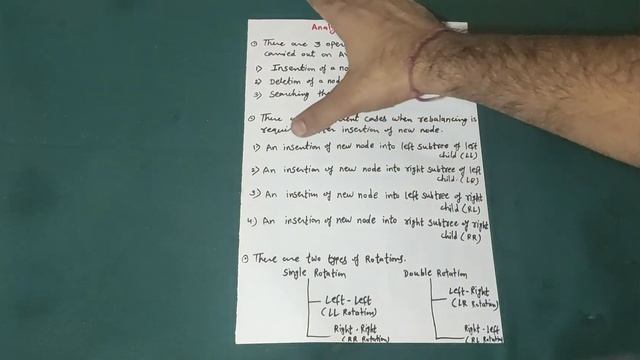 Analy
There are 3 oper
carried out on A
1) Insertion of a no
2) Deletion of a nod
3) Searching the
There cases when rebalancing is
insertion of new node.
1) An insertion of new node into left subtree of left
child (LL)
2) An insertion of new node into right subtree of left
child (LR)
3) An insertion of new node into left subtree of right
child (RL)
4) An insertion of new node into right subtree of right
child (RR)
There are two types of Rotations.
Single Rotation Double Rotation
Left-Left Left-Right
(LL Rotation) (LR Rotation)
Right-Right Right-Left
(RR Rotation) (RL Rotation